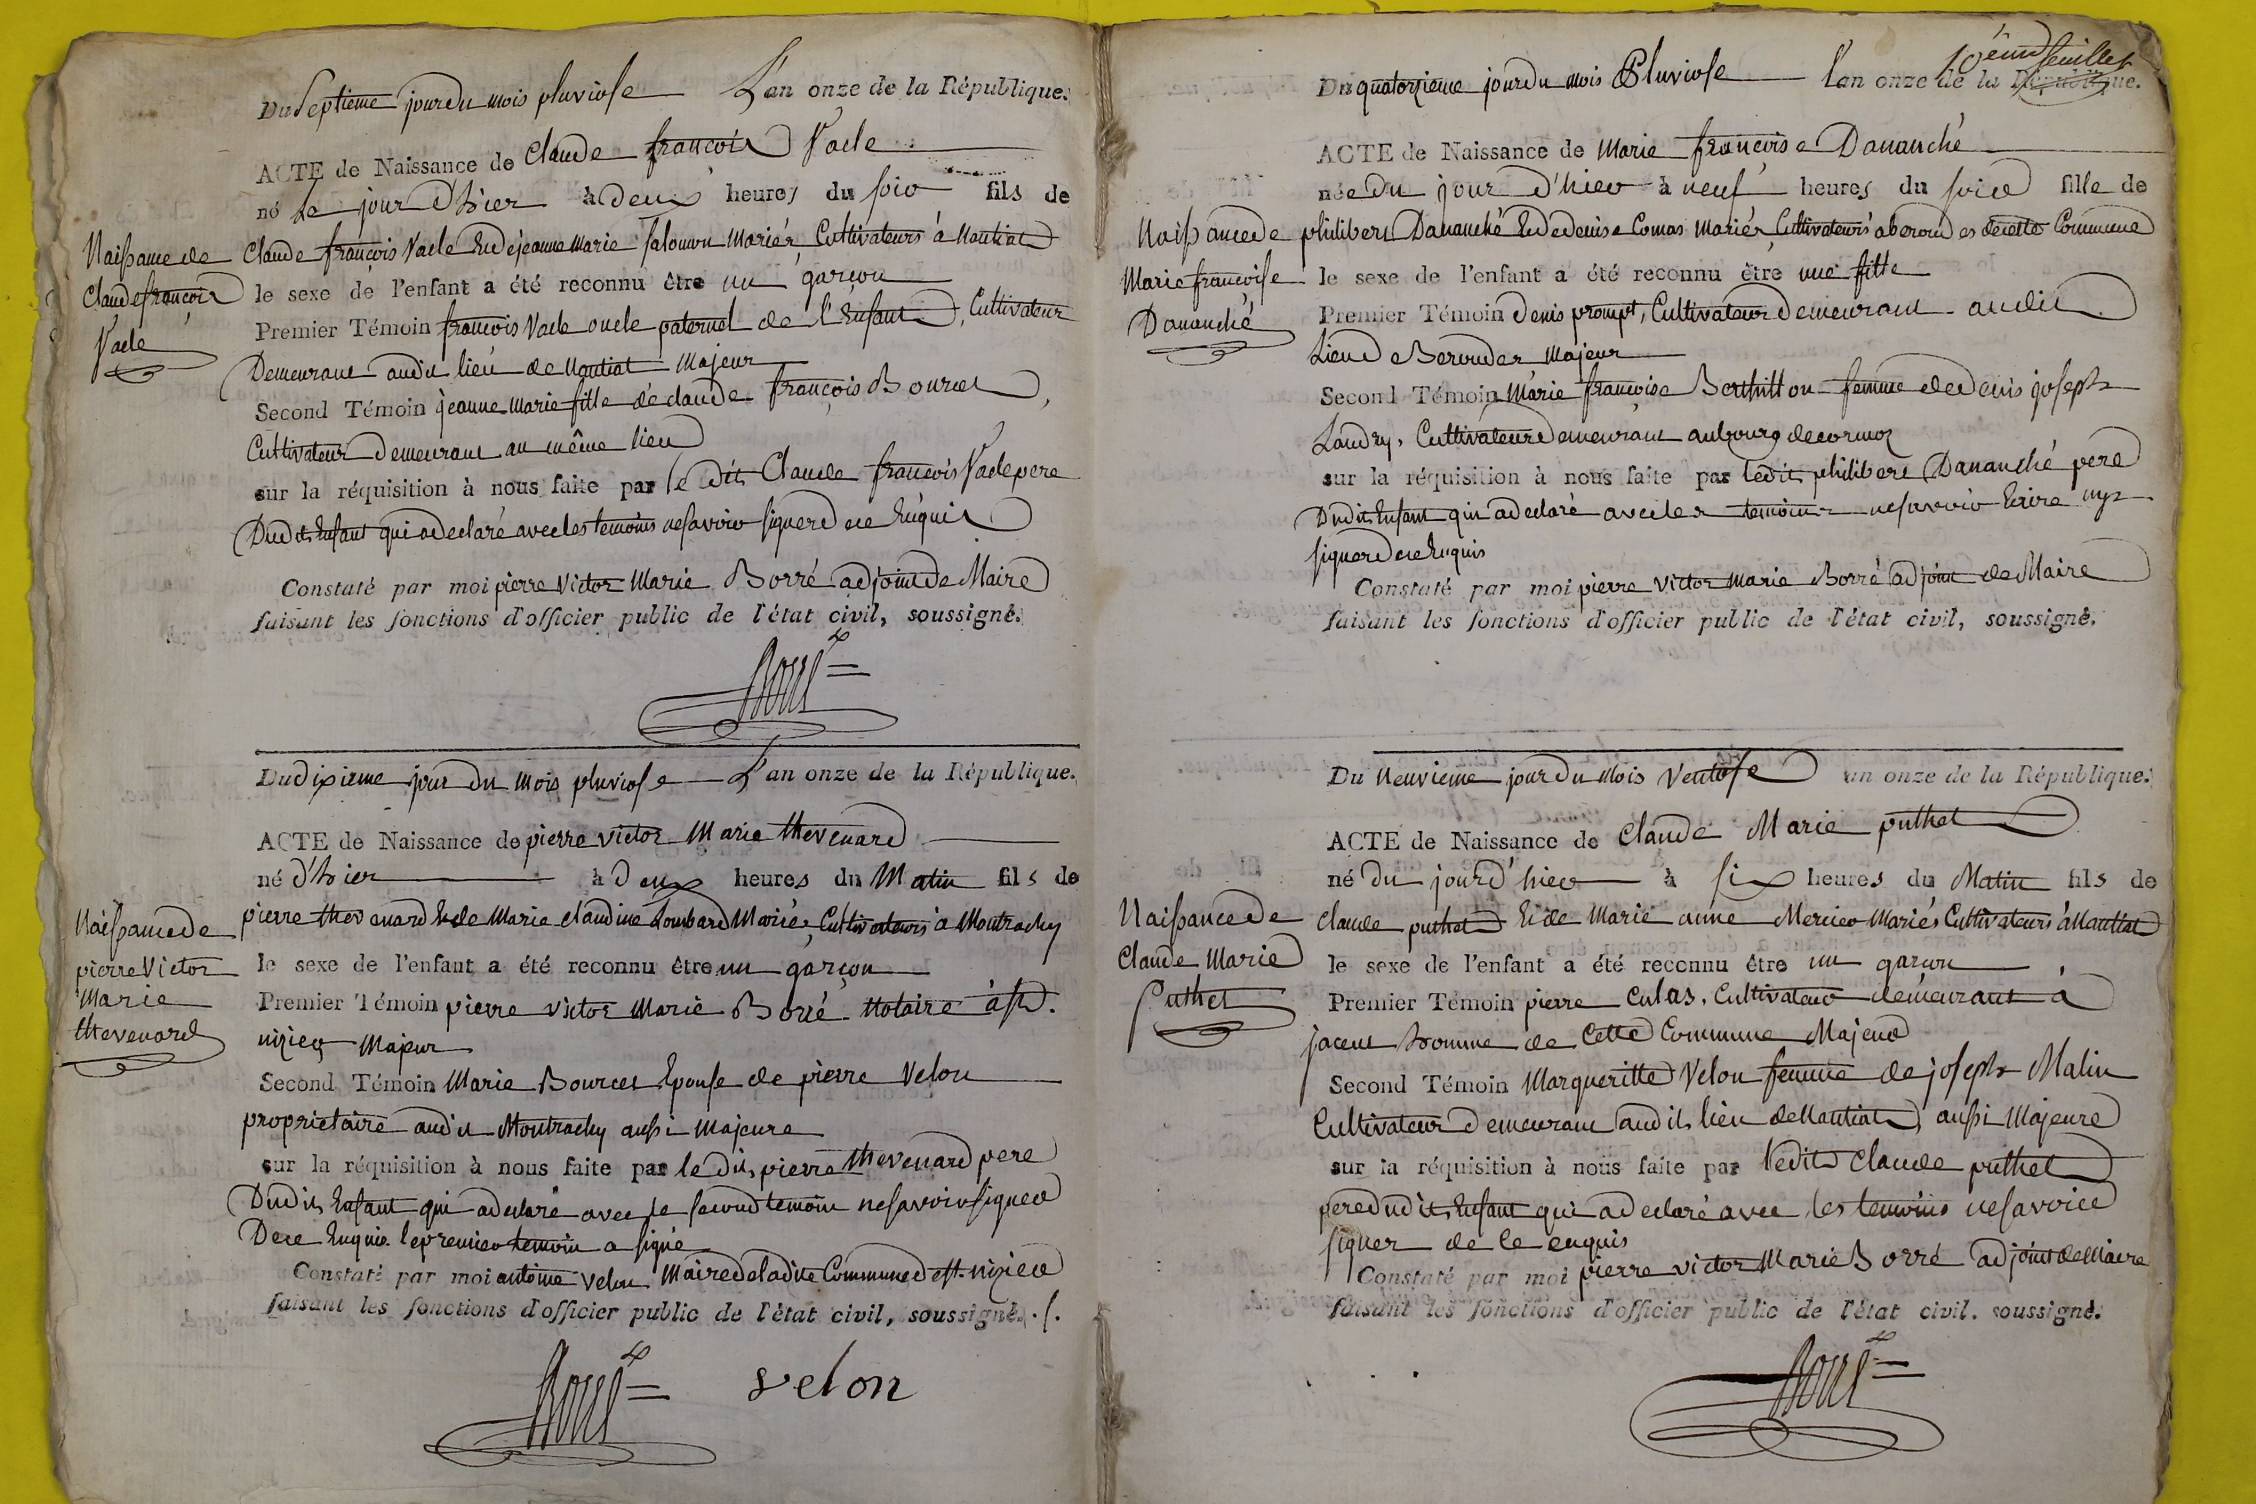 Du Septieme jour du mois pluviose L'an onze de la République.
ACTE de Naissance de Claude françois Vacle
né Le jour d'hier à deux heures du soir fils de
Naissance de
Claude françois
Vacle
Claude françois Vacle Et de jeanne marie Salomon Mariés Cultivateurs à Nantiat
le sexe de l'enfant a été reconnu être un garçon
Premier Témoin françois Vacle oncle paternel de l'Enfant, Cultivateur
Demeurant audit lieu de Nantiat Majeur
Second Témoin jeanne marie fille de claude françois Bourcet,
Cultivateur Demeurant au même lieu
sur la réquisition à nous faite par le dit Claude françois Vacle pere
Dudit Enfant qui a declaré avec les temoins ne savoir signer de ce Enquis
Constaté par moi pierre Victor Marie Borré adjoint de Maire
faisant les fonctions d'officier public de l'état civil, soussigné.
Borré
Du dixieme jour du mois pluviose L'an onze de la République.
ACTE de Naissance de pierre victor Marie thevenard
né d'hier à deux heures du Matin fils de
Naissance de
pierre Victor
Marie
thevenard
pierre thevenard Et de Marie claudine Lombard Mariés, Cultivateurs à Montrachy
le sexe de l'enfant a été reconnu être un garçon
Premier Témoin pierre victor Marie Borré Notaire à st.
nizier Majeur
Second Témoin Marie Bourcet Epouse de pierre Velon
proprietaire audit Montrachy aussi Majeure
sur la réquisition à nous faite par le dit pierre thevenard pere
Dudit Enfant qui a declaré avec le second temoin ne savoir signer
De ce Enquis le premier temoin a signé
Constaté par moi antoine velon Maire de ladite Commune de st. nizier
faisant les fonctions d'officier public de l'état civil, soussigné.
Borré velon
10ème feuillet
Du quatorzieme jour du mois Pluviose L'an onze de la République.
ACTE de Naissance de Marie françoise Dananché
née Du jour d'hier à neuf heures du soir fille de
Naissance de
Marie françoise
Dananché
philibert Dananché Et de denise Comas Mariés, Cultivateurs a beroudes de cette Commune
le sexe de l'enfant a été reconnu être une fille
Premier Témoin Denis prompt, Cultivateur Demeurant audit
Lieu de Beroudes Majeur
Second Témoin Marie françoise Berthillon femme de denis joseph
Landry, Cultivateur Demeurant au bourg de cormoz
sur la réquisition à nous faite par ledit philibert Dananché pere
Dudit Enfant qui a declaré avec les temoins ne savoir Ecrire ny
signer de ce Enquis
Constaté par moi pierre victor Marie Borré adjoint de Maire
faisant les fonctions d'officier public de l'état civil, soussigné.
Du Neuvieme jour du Mois Ventose an onze de la République.
ACTE de Naissance de Claude Marie puthet
né Du jour d'hier à six heures du Matin fils de
Naissance de
Claude Marie
Puthet
Claude puthet Et de Marie anne Mercier Mariés Cultivateurs à Nantiat
le sexe de l'enfant a été reconnu être un garçon
Premier Témoin pierre Culas, Cultivateur demeurant à
jacent homme de Cette Commune Majeur
Second Témoin Margueritte Velon femme de joseph Malin
Cultivateur Demeurant audit lieu de Nantiat aussi Majeure
sur la réquisition à nous faite par ledit Claude puthet
pere dudit Enfant qui a declaré avec les temoins ne savoir
signer de ce enquis
Constaté par moi pierre victor Marie Borré adjoint de Maire
faisant les fonctions d'officier public de l'état civil. soussigné.
Borré